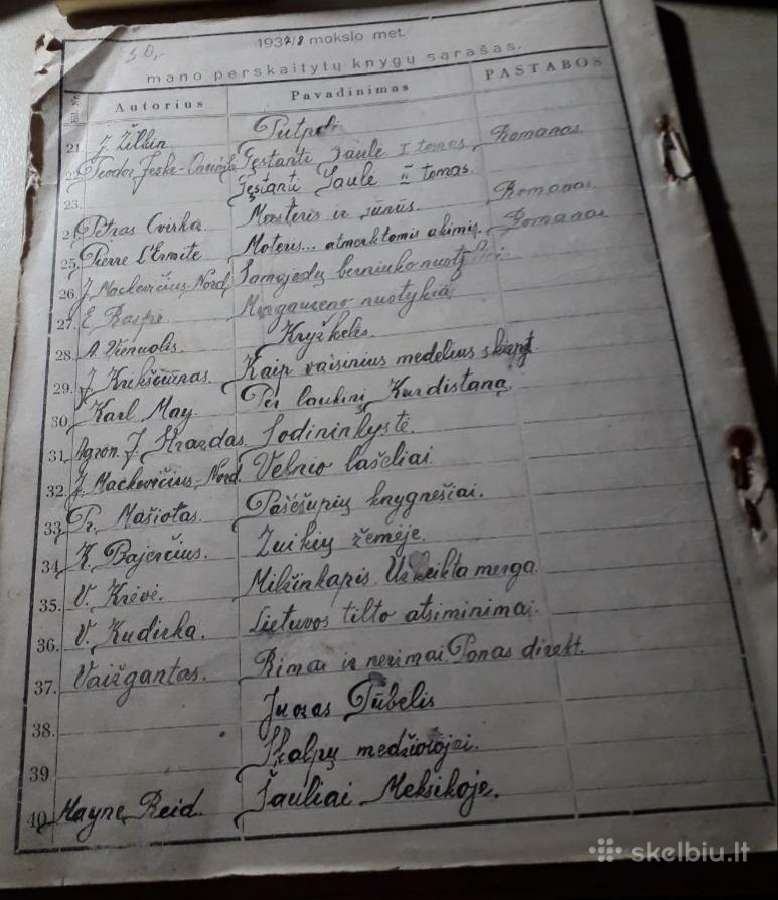 50,-
1937/8 mokslo met.
mano perskaitytų knygų sąrašas.
Autorius Pavadinimas PASTABOS
21. J. Žilkin
22. Teodor Jeske- Gęstanti Saulė I tomas. Romanas
23. Gęstanti Saulė II tomas.
24. Petras Cvirka Meisteris ir sūnūs. Romanas
25. Pierre l'Ermite Moteris... atmerktomis akimis. Romanas
26. J. Mackevičius Nord. Samojedų berniuko
27. E. Raspe nuotykiai
28. A. Vienuolis. Kryžkelės.
29. J. Krikščiūnas. Kaip vaisinius medelius skiepyt
30. Karl May. Per laukinį Kurdistaną
31. Agron. J. Strazdas Sodininkystė.
32. J. Mackevičius-Nord. Velnio lašeliai.
33. Pr. Mašiotas. Pašešupių knygnešiai.
34. K. Bajerčius. Zuikių žemėje.
35. V. Krėvė. Milžinkapis. Užkeikta merga
36. V. Kudirka. Lietuvos tilto atsiminimai.
37. Vaižgantas. Rimai ir nerimai. Ponas direkt.
38. Juozas Tūbelis
39 Skalpų medžiotojai.
40. Mayne Reid. Šauliai Meksikoje.
skelbiu.lt